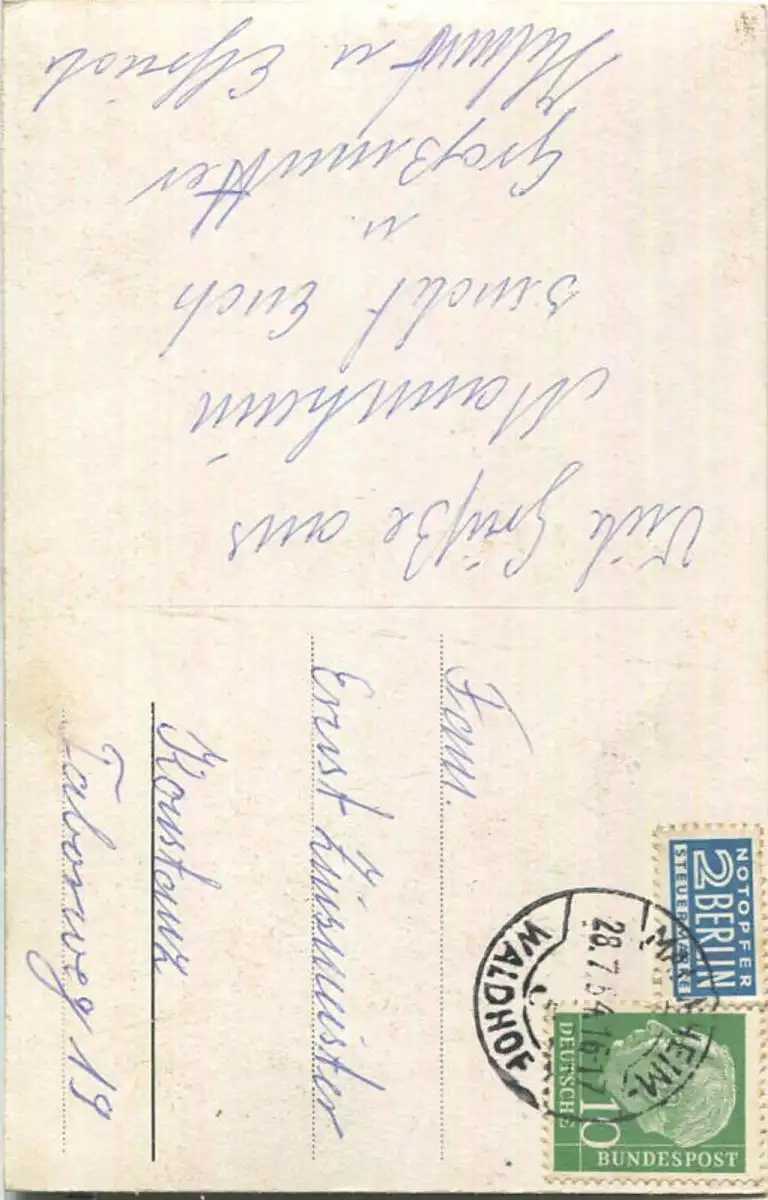 Viele Grüße aus
Mannheim
sendet Euch
u.
Großmutter
Helmut u
Fam.
Ernst
Konstanz
Taborweg 19
NOTOPFER
2 BERLIN
STEUERMARKE
MANNHEIM-
WALDHOF
28.7.54.1617
DEUTSCHE
10
BUNDESPOST